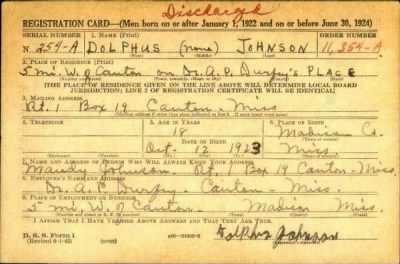 Discharged
REGISTRATION CARD—(Men born on or after January 1, 1922 and on or before June 30, 1924)
SERIAL NUMBER 1. NAME (Print) ORDER NUMBER
N 254-A DOLPHUS (none) JOHNSON 11,254-A
(First) (Middle) (Last)
2. PLACE OF RESIDENCE (Print)
5 mi. W. of Canton on Dr. A. P. Durfey's PLACE
[THE PLACE OF RESIDENCE GIVEN ON THE LINE ABOVE WILL DETERMINE LOCAL BOARD
JURISDICTION; LINE 2 OF REGISTRATION CERTIFICATE WILL BE IDENTICAL]
3. MAILING ADDRESS
Rt. 1 Box 19 Canton, Miss
4. TELEPHONE 5. AGE IN YEARS 6. PLACE OF BIRTH
18 Madison Co.
DATE OF BIRTH
Oct 12 1923 Miss.
7. NAME AND ADDRESS OF PERSON WHO WILL ALWAYS KNOW YOUR ADDRESS
Maudy Johnson Rt. 1 Box 19 Canton, Miss.
8. EMPLOYER'S NAME AND ADDRESS
Dr. A. P. Durfey - Canton - Miss.
9. PLACE OF EMPLOYMENT OR BUSINESS
5 mi. W. of Canton Madison Miss
I AFFIRM THAT I HAVE VERIFIED ABOVE ANSWERS AND THAT THEY ARE TRUE.
D. S. S. Form 1
(Revised 6-1-42) (over) Dolphus Johnson